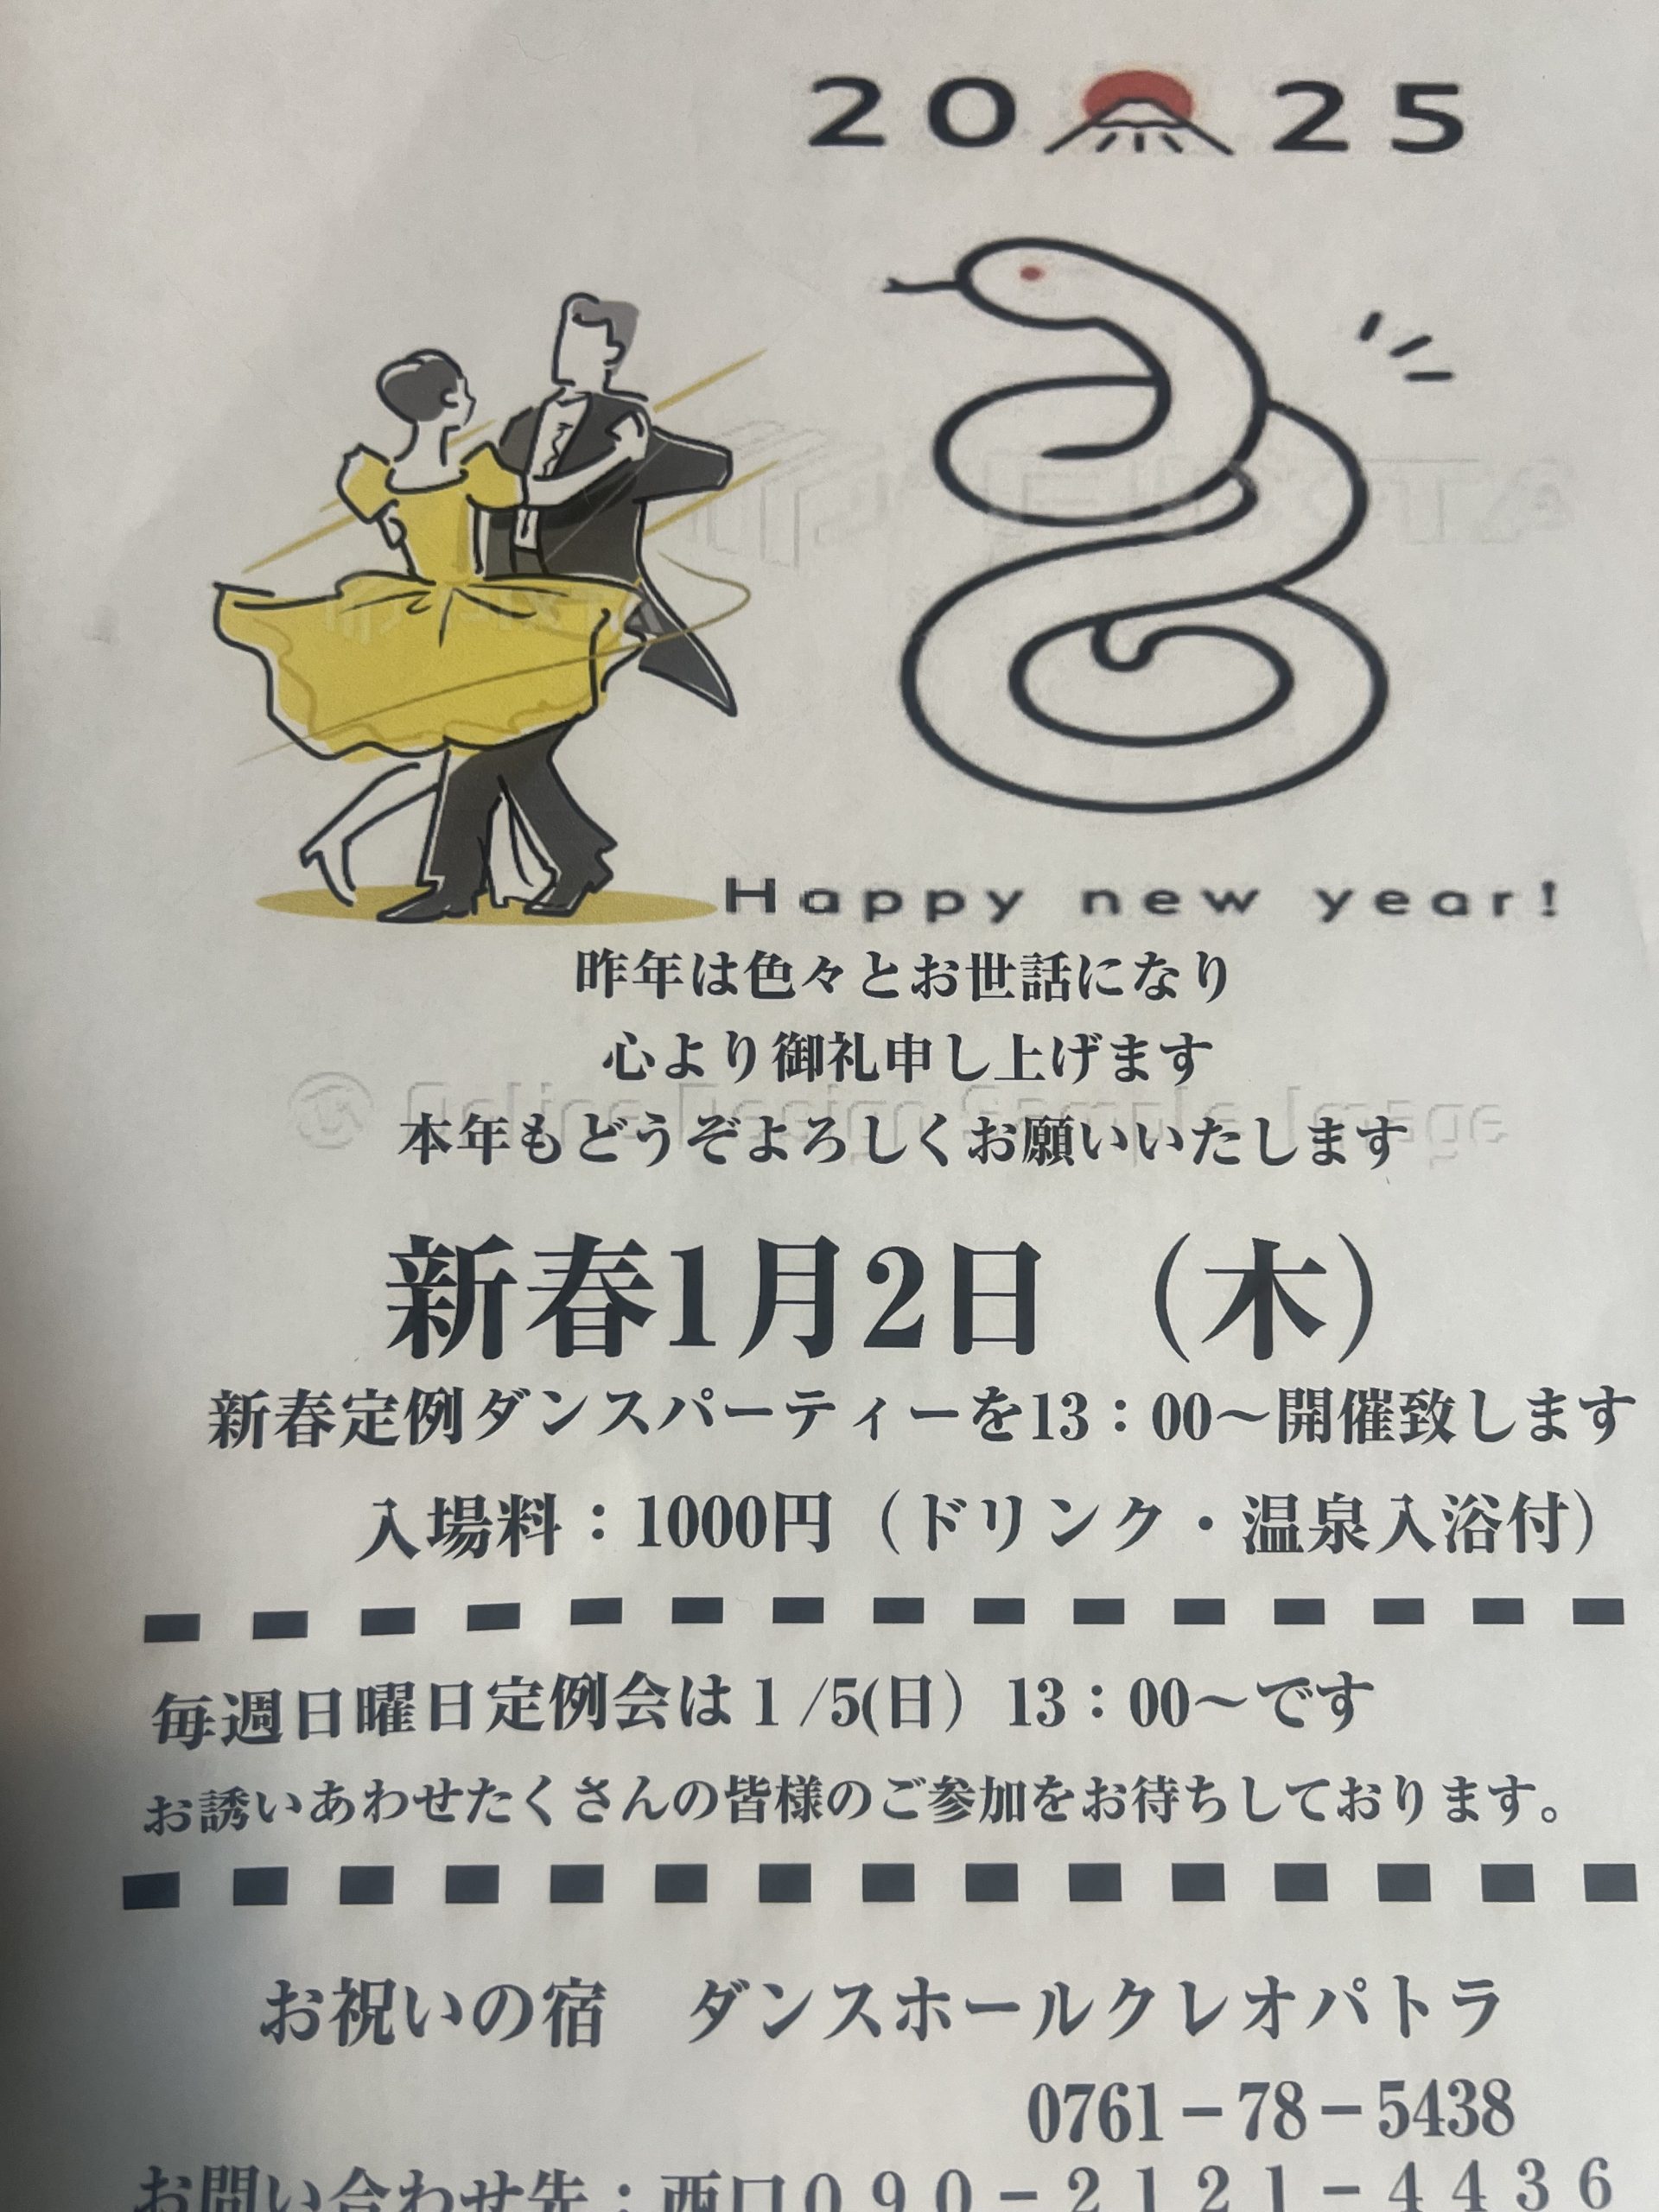 2025
Happy new year!
昨年は色々とお世話になり
心より御礼申し上げます
本年もどうぞよろしくお願いいたします
新春1月2日（木）
新春定例ダンスパーティーを13：00～開催致します
入場料：1000円（ドリンク・温泉入浴付）
毎週日曜日定例会は１/5(日）13：00～です
お誘いあわせたくさんの皆様のご参加をお待ちしております。
お祝いの宿　ダンスホールクレオパトラ
0761－78－5438
お問い合わせ先：西口０９０－２１２１－４４３６